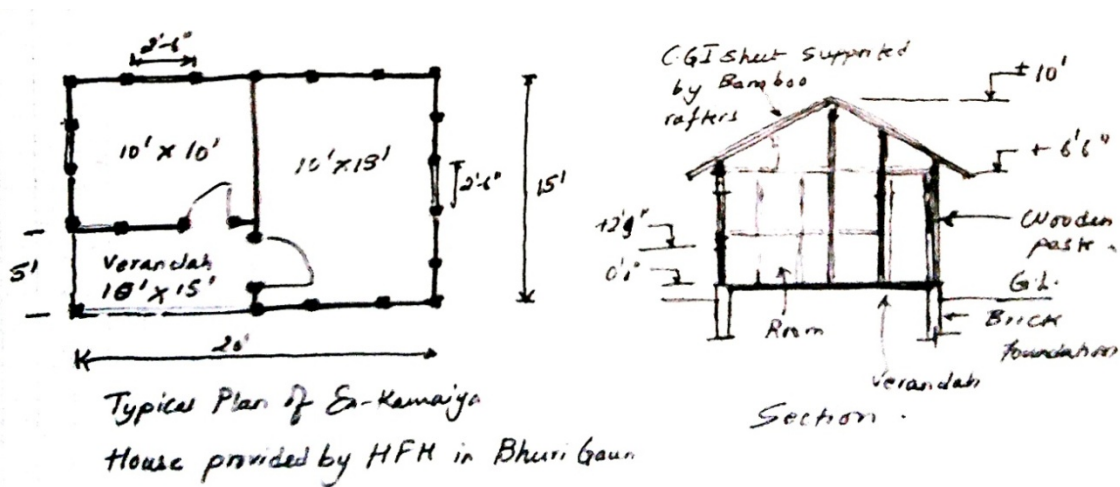 2'-6"
10' X 10'
10' X 15'
2'-6"
15'
5'
Verandah
10' X 15'
20'
Typical Plan of Ex-Kamaiya
House provided by HFH in Bhuri Gaun
C.G.I sheet supported
by Bamboo
rafters
± 10'
+ 6'6"
+2'9"
Wooden
G.L.
Brick
foundation
Room
Verandah
Section.